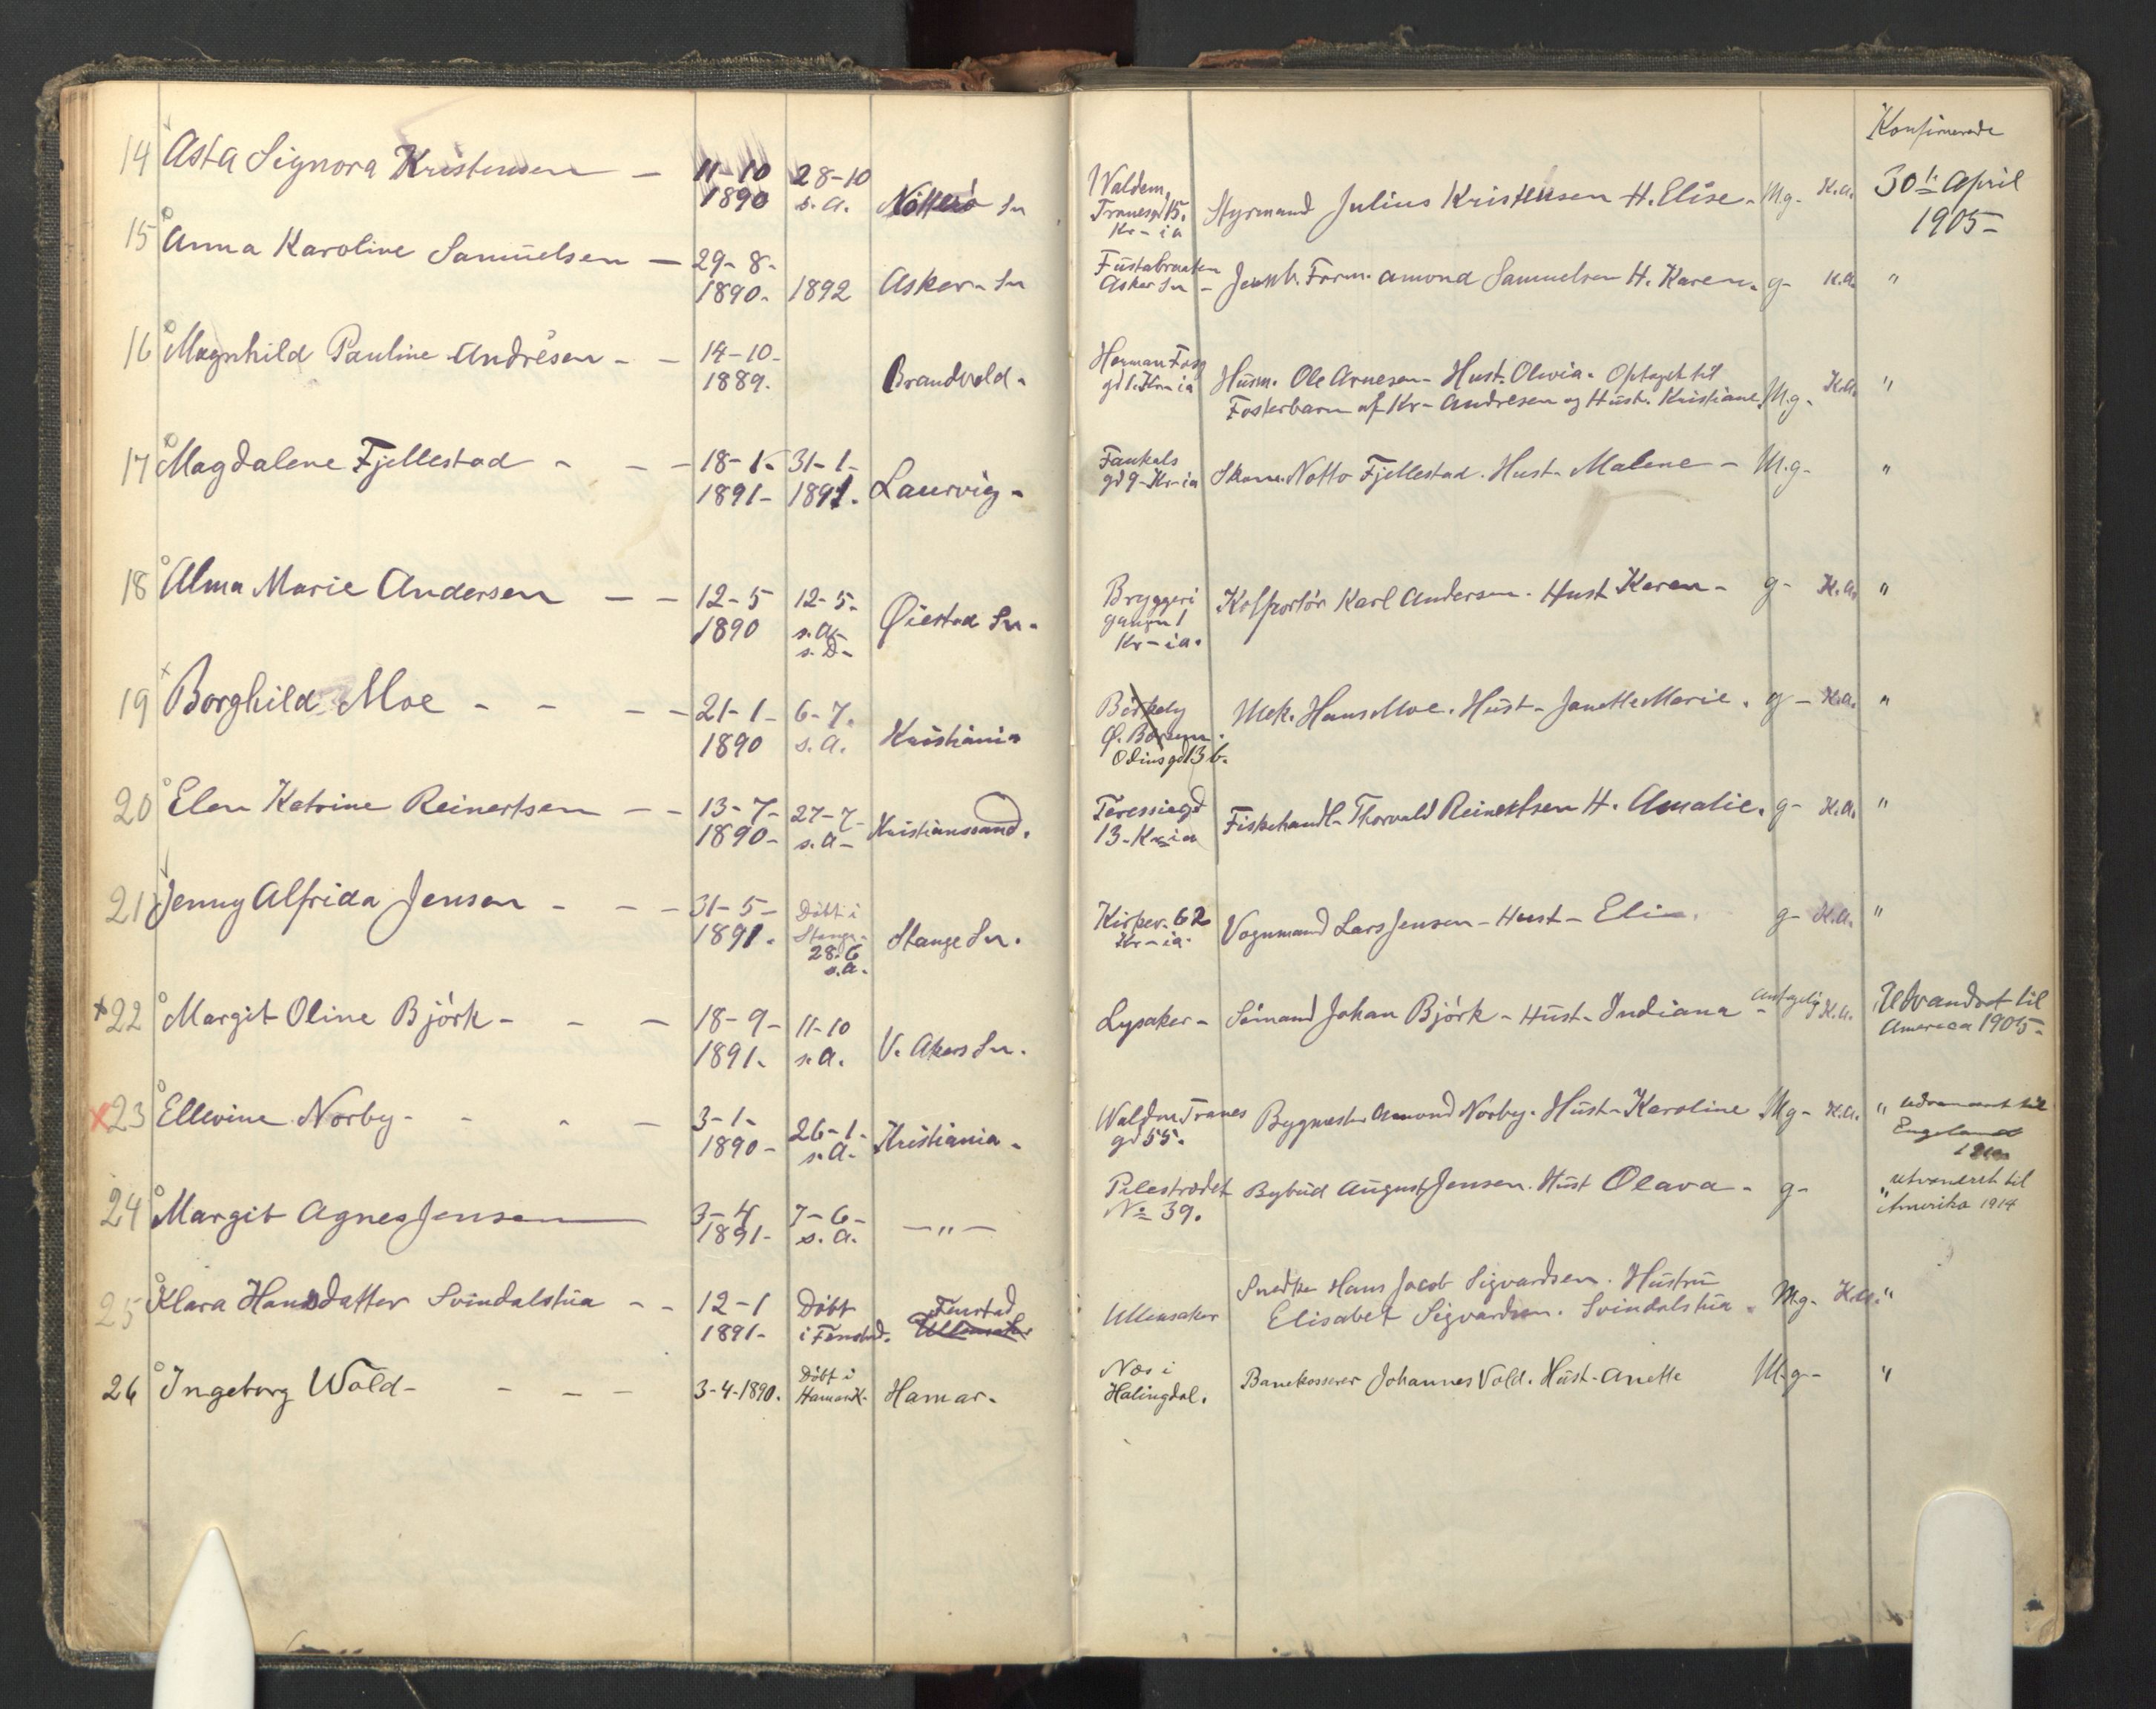 Konfirmerede
14 Asta Signora Kristensen – 11-10 1890 28-10 s.a. Nötterö Sn Valdem. Tranesgd 15. Kr-ia Styrmand Julius Kristensen H. Elise. Mg. K.a. 30te April 1905-
15 Anna Karoline Samuelsen – 29-8- 1890. 1892 Asker Sn Fustabraaten Asker Sn – Form. Amond Samuelsen H. Karen. g- K.a. "
16 Magnhild Pauline Andrésen - - 14-10- 1889. Brandvold. Herman Foss gd 1. Kr-ia Husm. Ole Arnesen- Hust. Olivia. Optaget til
Fosterbarn af Kr- Andresen og Hust. Kristiane. M.g- K.a. "
17 Magdalene Fjellestad - - - 18-1- 1891- 31-1- 1891. Laurvig- Faukals gd 9-Kr-ia Skom. Notto Fjellestad. Hust- Malene- M.g- "
18 Alma Marie Andersen - - 12-5 1890 12-5- s.a- s.D- Øiestad Sn. Bryggeri gangen 1 Kr-ia. Kolportör Karl Andersen. Hust Karen- g- K.a. "
19 Borghild Moe - - - - 21-1- 1890 6-7. s.a. Kristiania Birkely Ø. Bærum. Odinsgd 13 b. Mek. Hans Moe. Hust- Janette Marie. g- K.a. "
20 Elen Katrine Reinertsen - - 13-7- 1890- 27-7- s.a- Kristianssand. Teressiegd 13-Kr-ia Fiskehandl- Thorvald Reinertsen H. Amalie. g- K.a. "
21 Jenny Alfrida Jensen - - - 31-5- 1891. Döbt i Stange- 28.6 s.a. Stange Sn. Kirkev. 62 Kr-ia. Vognmand Lars Jensen- Hust- Eli-. g- K.a. "
x22 Margit Oline Björk- - - 18-9- 1891. 11-10 s.a. V. Akers Sn. Lysaker- Sömand Johan Björk- Hust- Indiana - K.a. Utvandret til America 1905-
x23 Ellevine Norby- - - - 3-1- 1890- 26-1- s.a- Kristiania- Waldm Tranes gd 55. Bygmester Amond Norby. Hust- Karoline Mg- K.a. " udvandret til England
24 Margit Agnes Jensen 3-4 1891- 7-6- s.a. —"— Pilestrædet No 39. Bybud August Jensen. Hust Olava- g- " utvandret til Amerika 1914
25 Klara Hansdatter Svindalstua - - 12-1 1891- Döbt i Fenstad. Fenstad Ullensaker Ullensaker Snedker Hans Jacob Sigvardsen. Hustru
Elisabet Sigvardsen. Svindalstua. Mg- K.a. "
26 Ingeborg Wold- - - - 3-4-1890. Döbt i Hamar K- Hamar. Næs i Halingdal. Banekasserer Johannes Vold. Hust- Anette M.g- "